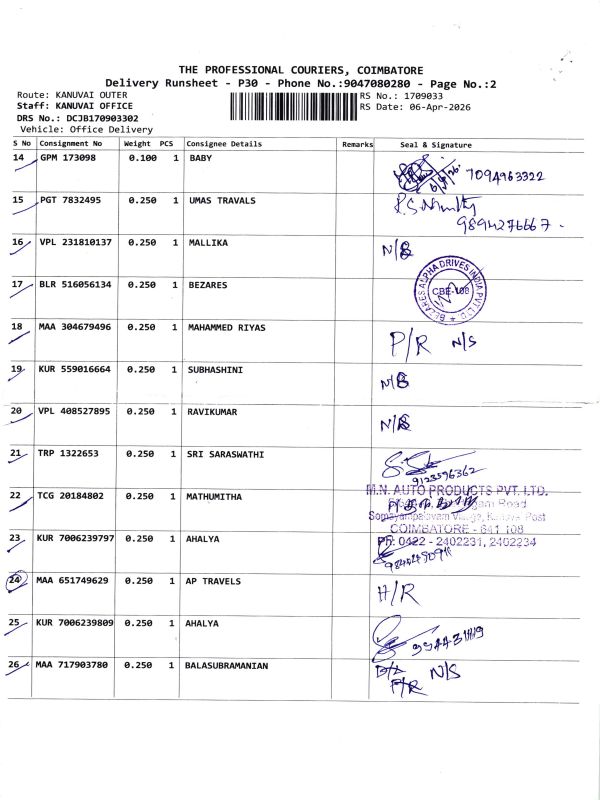 THE PROFESSIONAL COURIERS, COIMBATORE
Delivery Runsheet - P30 - Phone No.:9047080280 - Page No.:2
Route: KANUVAI OUTER
RS No.: 1709033
Staff: KANUVAI OFFICE
RS Date: 06-Apr-2026
DRS No.: DCJB170903302
Vehicle: Office Delivery
S No Consignment No Weight PCS Consignee Details Remarks Seal & Signature
14 GPM 173098 0.100 1 BABY 7094963322
15 PGT 7832495 0.250 1 UMAS TRAVALS
9894276667
16 VPL 231810137 0.250 1 MALLIKA N/S
17 BLR 516056134 0.250 1 BEZARES BEZARES ALPHA DRIVES INDIA PVT LTD. CBE-108
18 MAA 304679496 0.250 1 MAHAMMED RIYAS P/R N/S
19 KUR 559016664 0.250 1 SUBHASHINI N/S
20 VPL 408527895 0.250 1 RAVIKUMAR N/S
21 TRP 1322653 0.250 1 SRI SARASWATHI
9123596362
22 TCG 20184802 0.250 1 MATHUMITHA M.N. AUTO PRODUCTS PVT. LTD.
Road
Somayampalayam Village, Kanuvai Post
COIMBATORE - 641 108
23 KUR 7006239797 0.250 1 AHALYA Ph: 0422 - 2402231, 2402234
24 MAA 651749629 0.250 1 AP TRAVELS H/R
25 KUR 7006239809 0.250 1 AHALYA
26 MAA 717903780 0.250 1 BALASUBRAMANIAN N/S
P/R